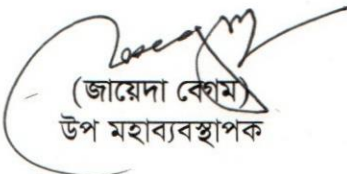 (জায়েদা বেগম)
উপ মহাব্যবস্থাপক